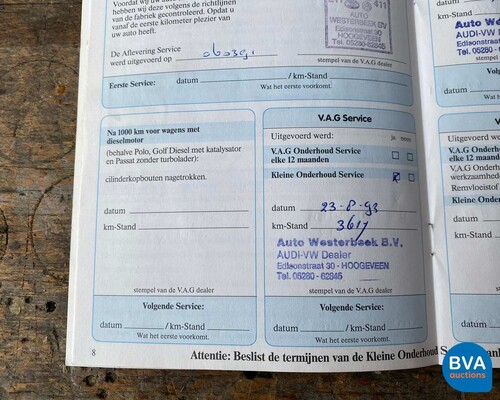 Voordat wij uw auto
hebben wij deze volgens de richtlijnen
van de fabriek gecontroleerd. Opdat u
vanaf de eerste kilometer plezier van
uw auto heeft.
De Aflevering Service
werd uitgevoerd op
stempel van de V.A.G dealer
AUTO
WESTERBEEK BV
Edisonstraat 30
HOOGEVEEN
Tel. 05280-62845
411
Eerste Service: datum / km-Stand
Wat het eerste voorkomt.
Na 1000 km voor wagens met
dieselmotor
(behalve Polo, Golf Diesel met katalysator
en Passat zonder turbolader):
cilinderkopbouten nagetrokken.
datum
km-Stand
stempel van de V.A.G dealer
Volgende Service:
datum / km-Stand
Wat het eerste voorkomt.
8
V.A.G Service
Uitgevoerd werd: ja neen
V.A.G Onderhoud Service
elke 12 maanden
Kleine Onderhoud Service
datum 23-8-93
km-Stand 3617
Auto Westerbeek B.V.
AUDI-VW Dealer
Edisonstraat 30 - HOOGEVEEN
Tel. 05280 - 62845
stempel van de V.A.G dealer
Volgende Service:
datum / km-Stand
Wat het eerste voorkomt.
Attentie: Beslist de termijnen van de Kleine Onderhoud S
Auto
AUDI-VW
Edisonstraat
Tel. 05280
stempel
Uitgevoerd werd:
V.A.G Onderhoud
elke 12 maanden
V.A.G Onderhoud
werkzaamheden
Remvloeistof
Kleine Onderhoud
datum
km-Stand
BVA
auctions